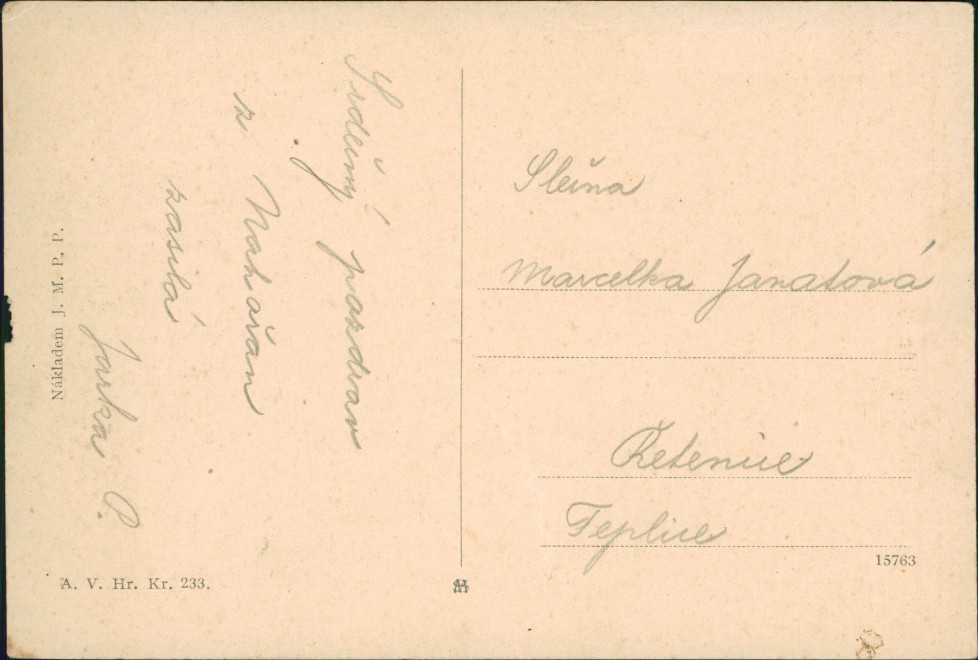 Srdečný pozdrav
z Nahořan
zasílá
Jarka P.
Slečna
Marcelka Janatová
Řetenice
Teplice
15763
Nákladem J. M. P. P.
A. V. Hr. Kr. 233.